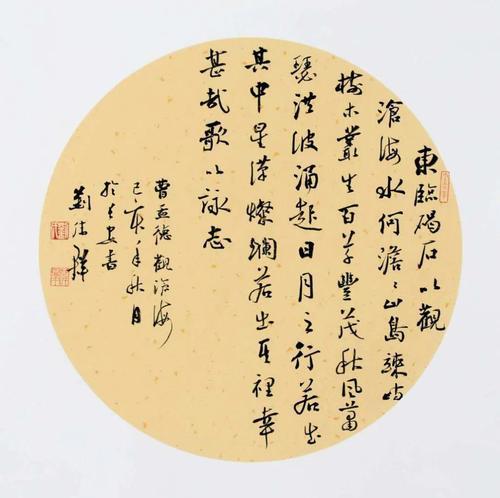 東臨碣石以觀
滄海水何澹澹山島竦峙
樹木叢生百草豐茂秋風蕭
瑟洪波涌起日月之行若出
其中星漢燦爛若出其裡幸
甚哉歌以詠志
曹孟德觀滄海
己亥年秋月
於長安書